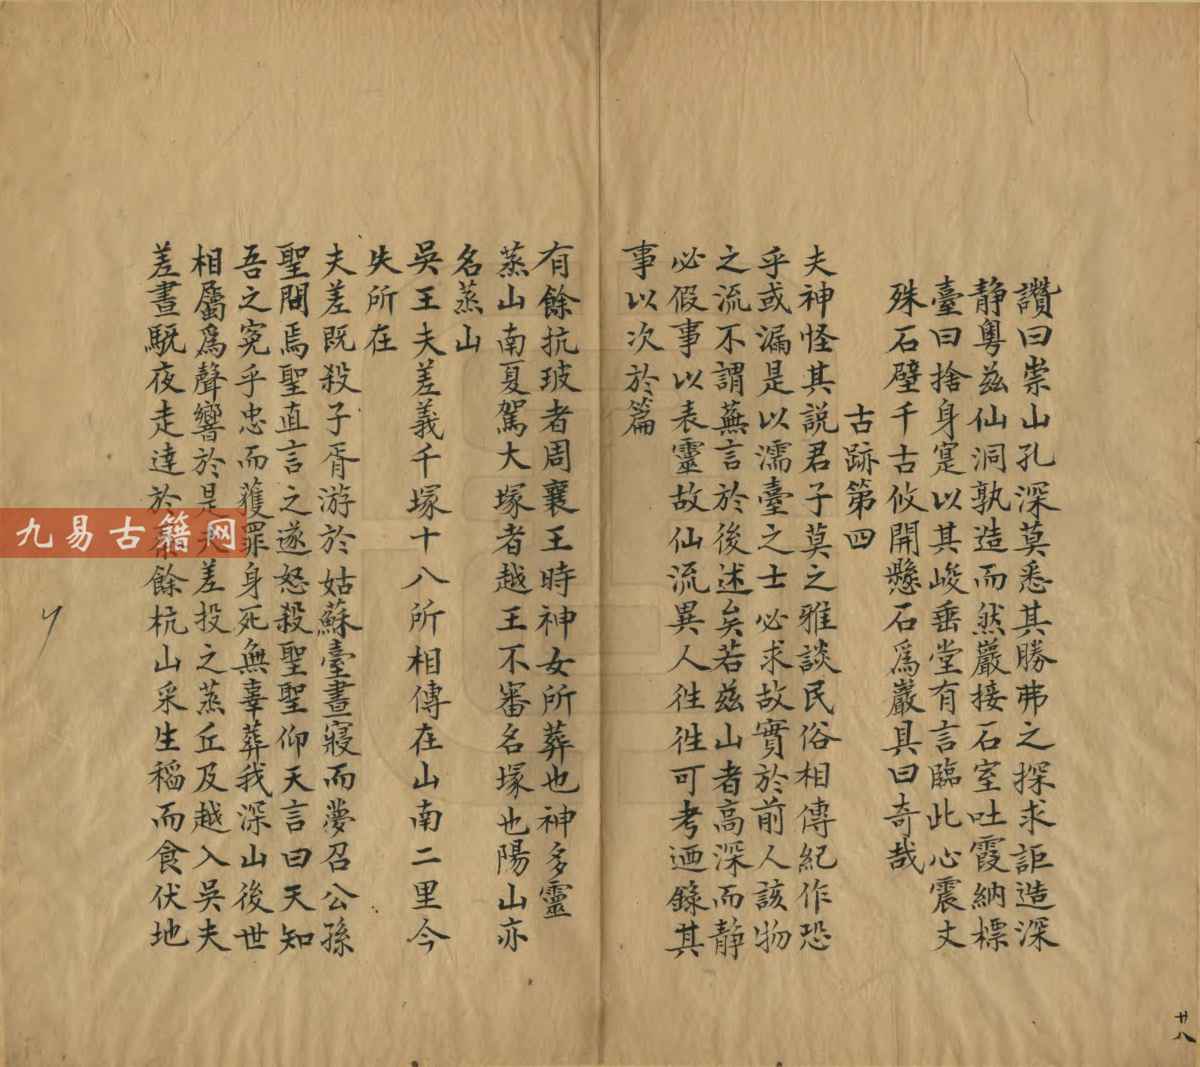 讚曰崇山孔深莫悉其勝弗之探求詎造深
静粤兹仙洞孰造而然巖接石室吐霞納標
臺曰捨身寔以其峻垂堂有言臨此心震丈
殊石壁千古攸開懸石爲巖具曰奇哉
古跡第四
夫神怪其説君子莫之雅談民俗相傳紀作恐
乎或漏是以濡臺之士必求故實於前人該物
之流不謂蕪言於後述矣若兹山者高深而静
必假事以表靈故仙流異人徃徃可考迺錄其
事以次於篇
有餘抗玻者周襄王時神女所葬也神多靈
蒸山南夏駕大塚者越王不審名塚也陽山亦
名蒸山
吳王夫差義千塚十八所相傳在山南二里今
失所在
夫差既殺子胥游於姑蘇臺晝寢而夢召公孫
聖問焉聖直言之遂怒殺聖聖仰天言曰天知
吾之寃乎忠而獲罪身死無辜葬我深山後世
相屬爲聲響於是夫差投之蒸丘及越入吳夫
差晝馳夜走達於餘杭山采生稻而食伏地
廿八
九易古籍网